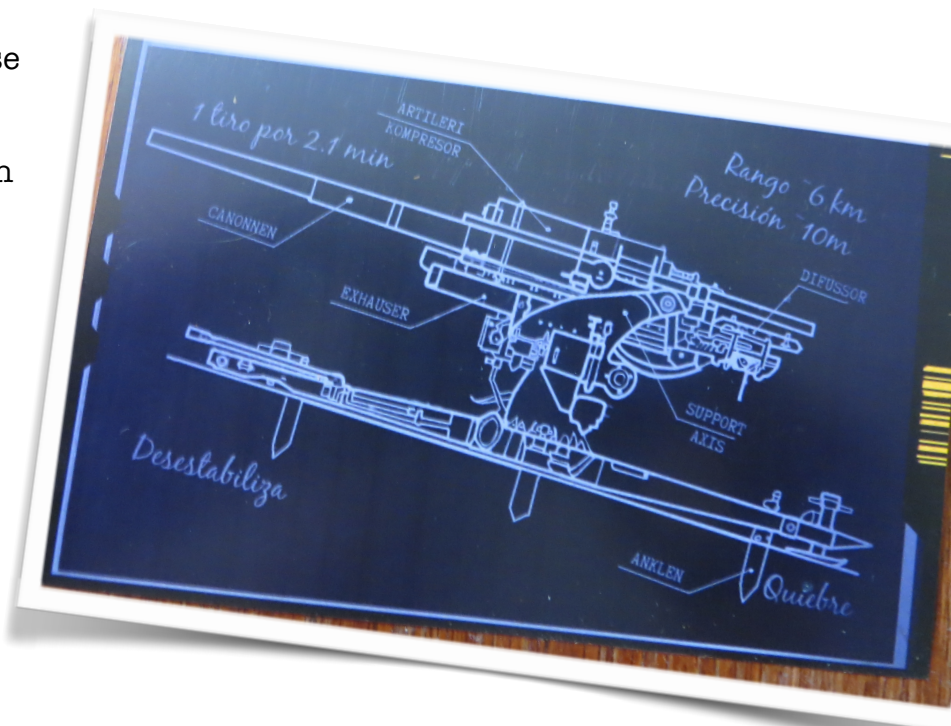 se
n
1 tiro por 2.1 min
ARTILERI
KOMPRESOR
Rango ~6 km
Precisión ~10m
CANONNEN
EXHAUSER
DIFUSSOR
SUPPORT
AXIS
Desestabiliza
ANKLEN
Quiebre